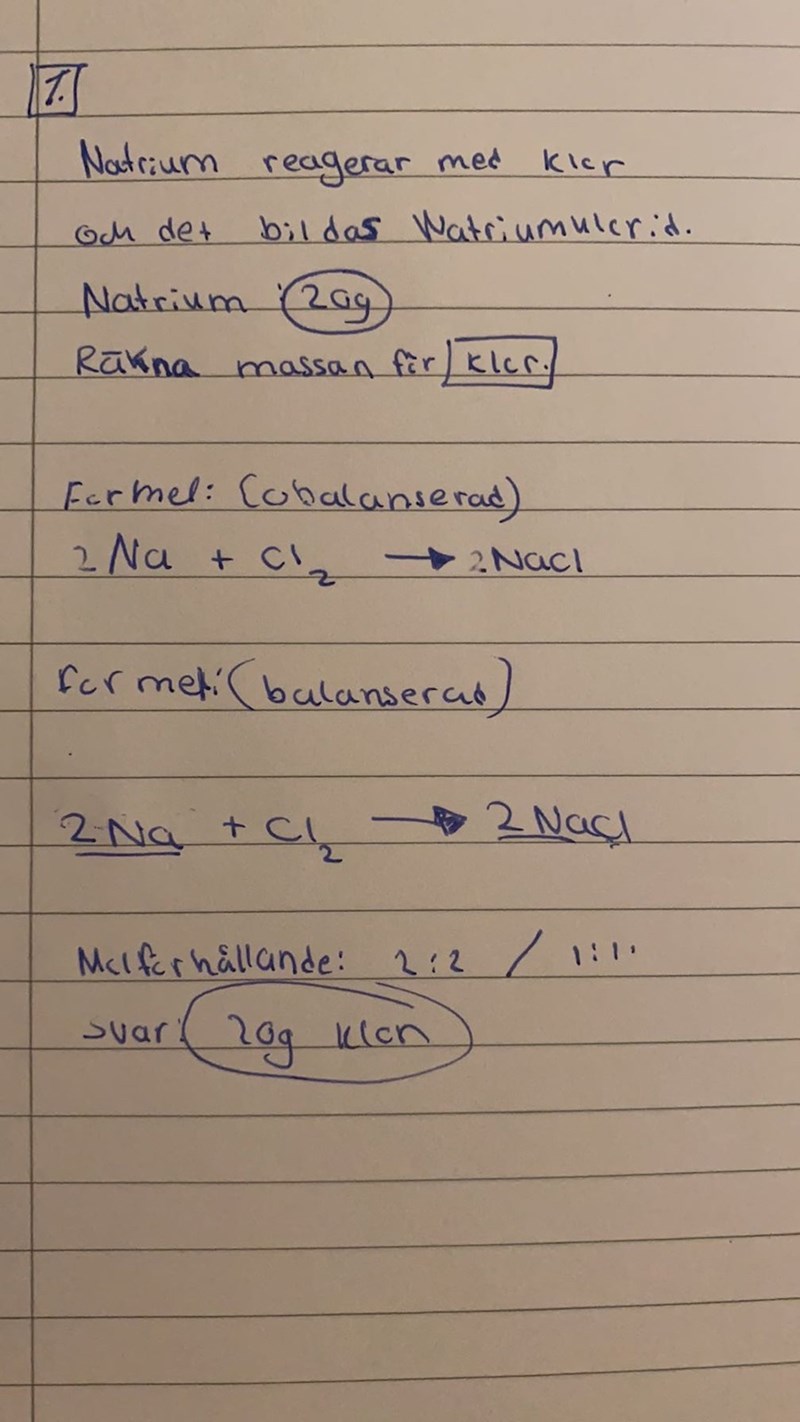 1.
Natrium reagerar med klor
och det bildas Natriumklorid.
Natrium: 20g
Räkna massan för klor.
Formel: (obalanserad)
2Na + Cl₂ → 2NaCl
Formel: (balanserad)
2Na + Cl₂ → 2NaCl
Molförhållande: 2:2 / 1:1.
svar: 20g klor